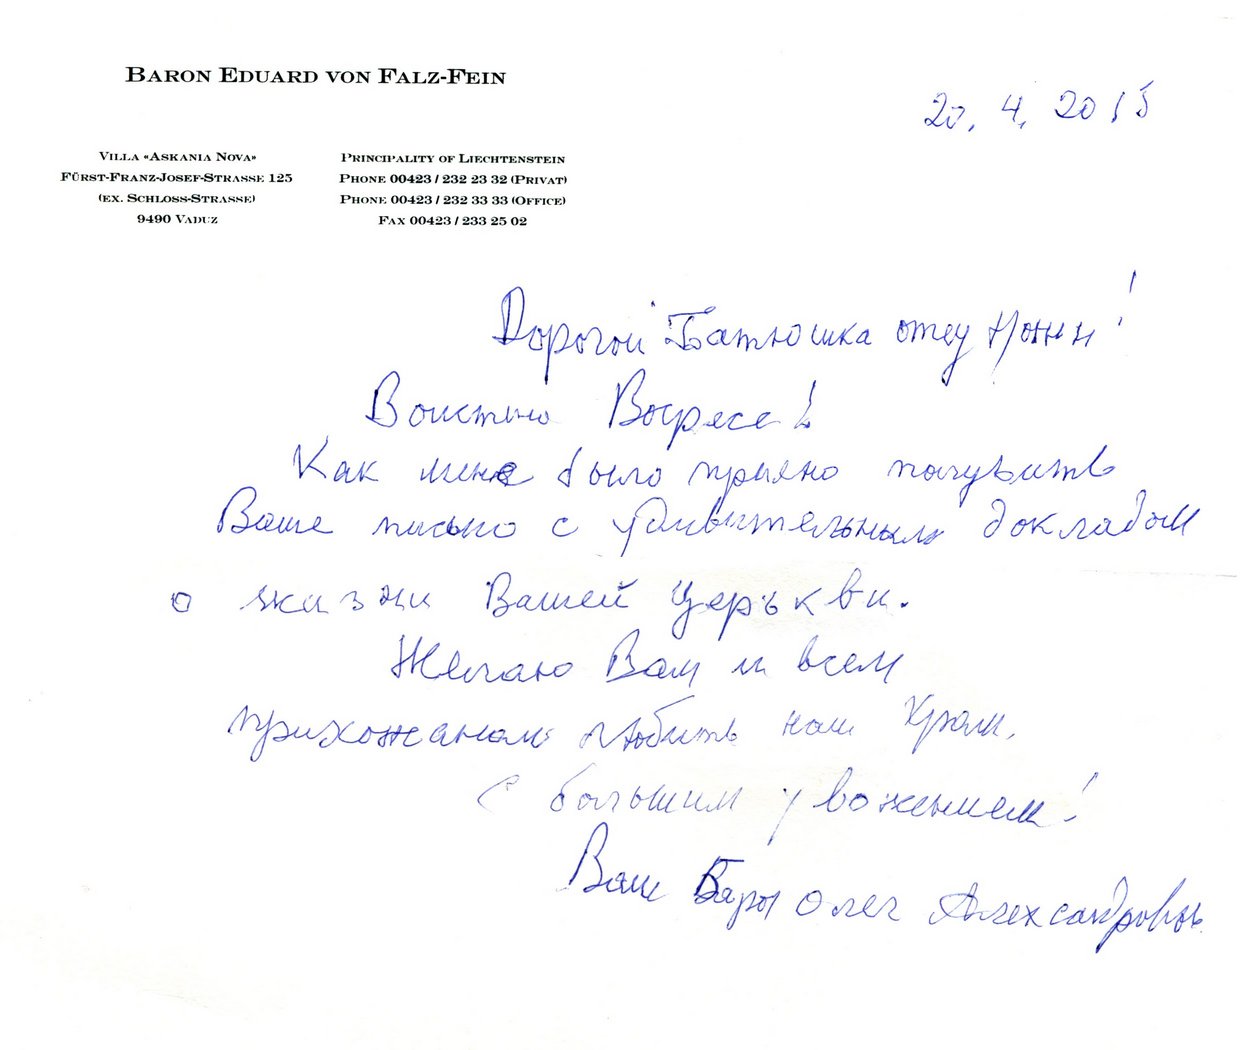 BARON EDUARD VON FALZ-FEIN
20. 4. 2015
VILLA «ASKANIA NOVA»
FÜRST-FRANZ-JOSEF-STRASSE 125
(EX. SCHLOSS-STRASSE)
9490 VADUZ
PRINCIPALITY OF LIECHTENSTEIN
PHONE 00423 / 232 23 32 (PRIVAT)
PHONE 00423 / 232 33 33 (OFFICE)
FAX 00423 / 233 25 02
Дорогой Батюшка отец
Воистину Воскресе!
Как мене было приятно
Ваше письмо с удивительным докладом
о жизни Вашей Церъкви.
Желаю Вам и всем
прихожанам любить наш Храм.
С большим уважением!
Ваш Барон Олег Александрович